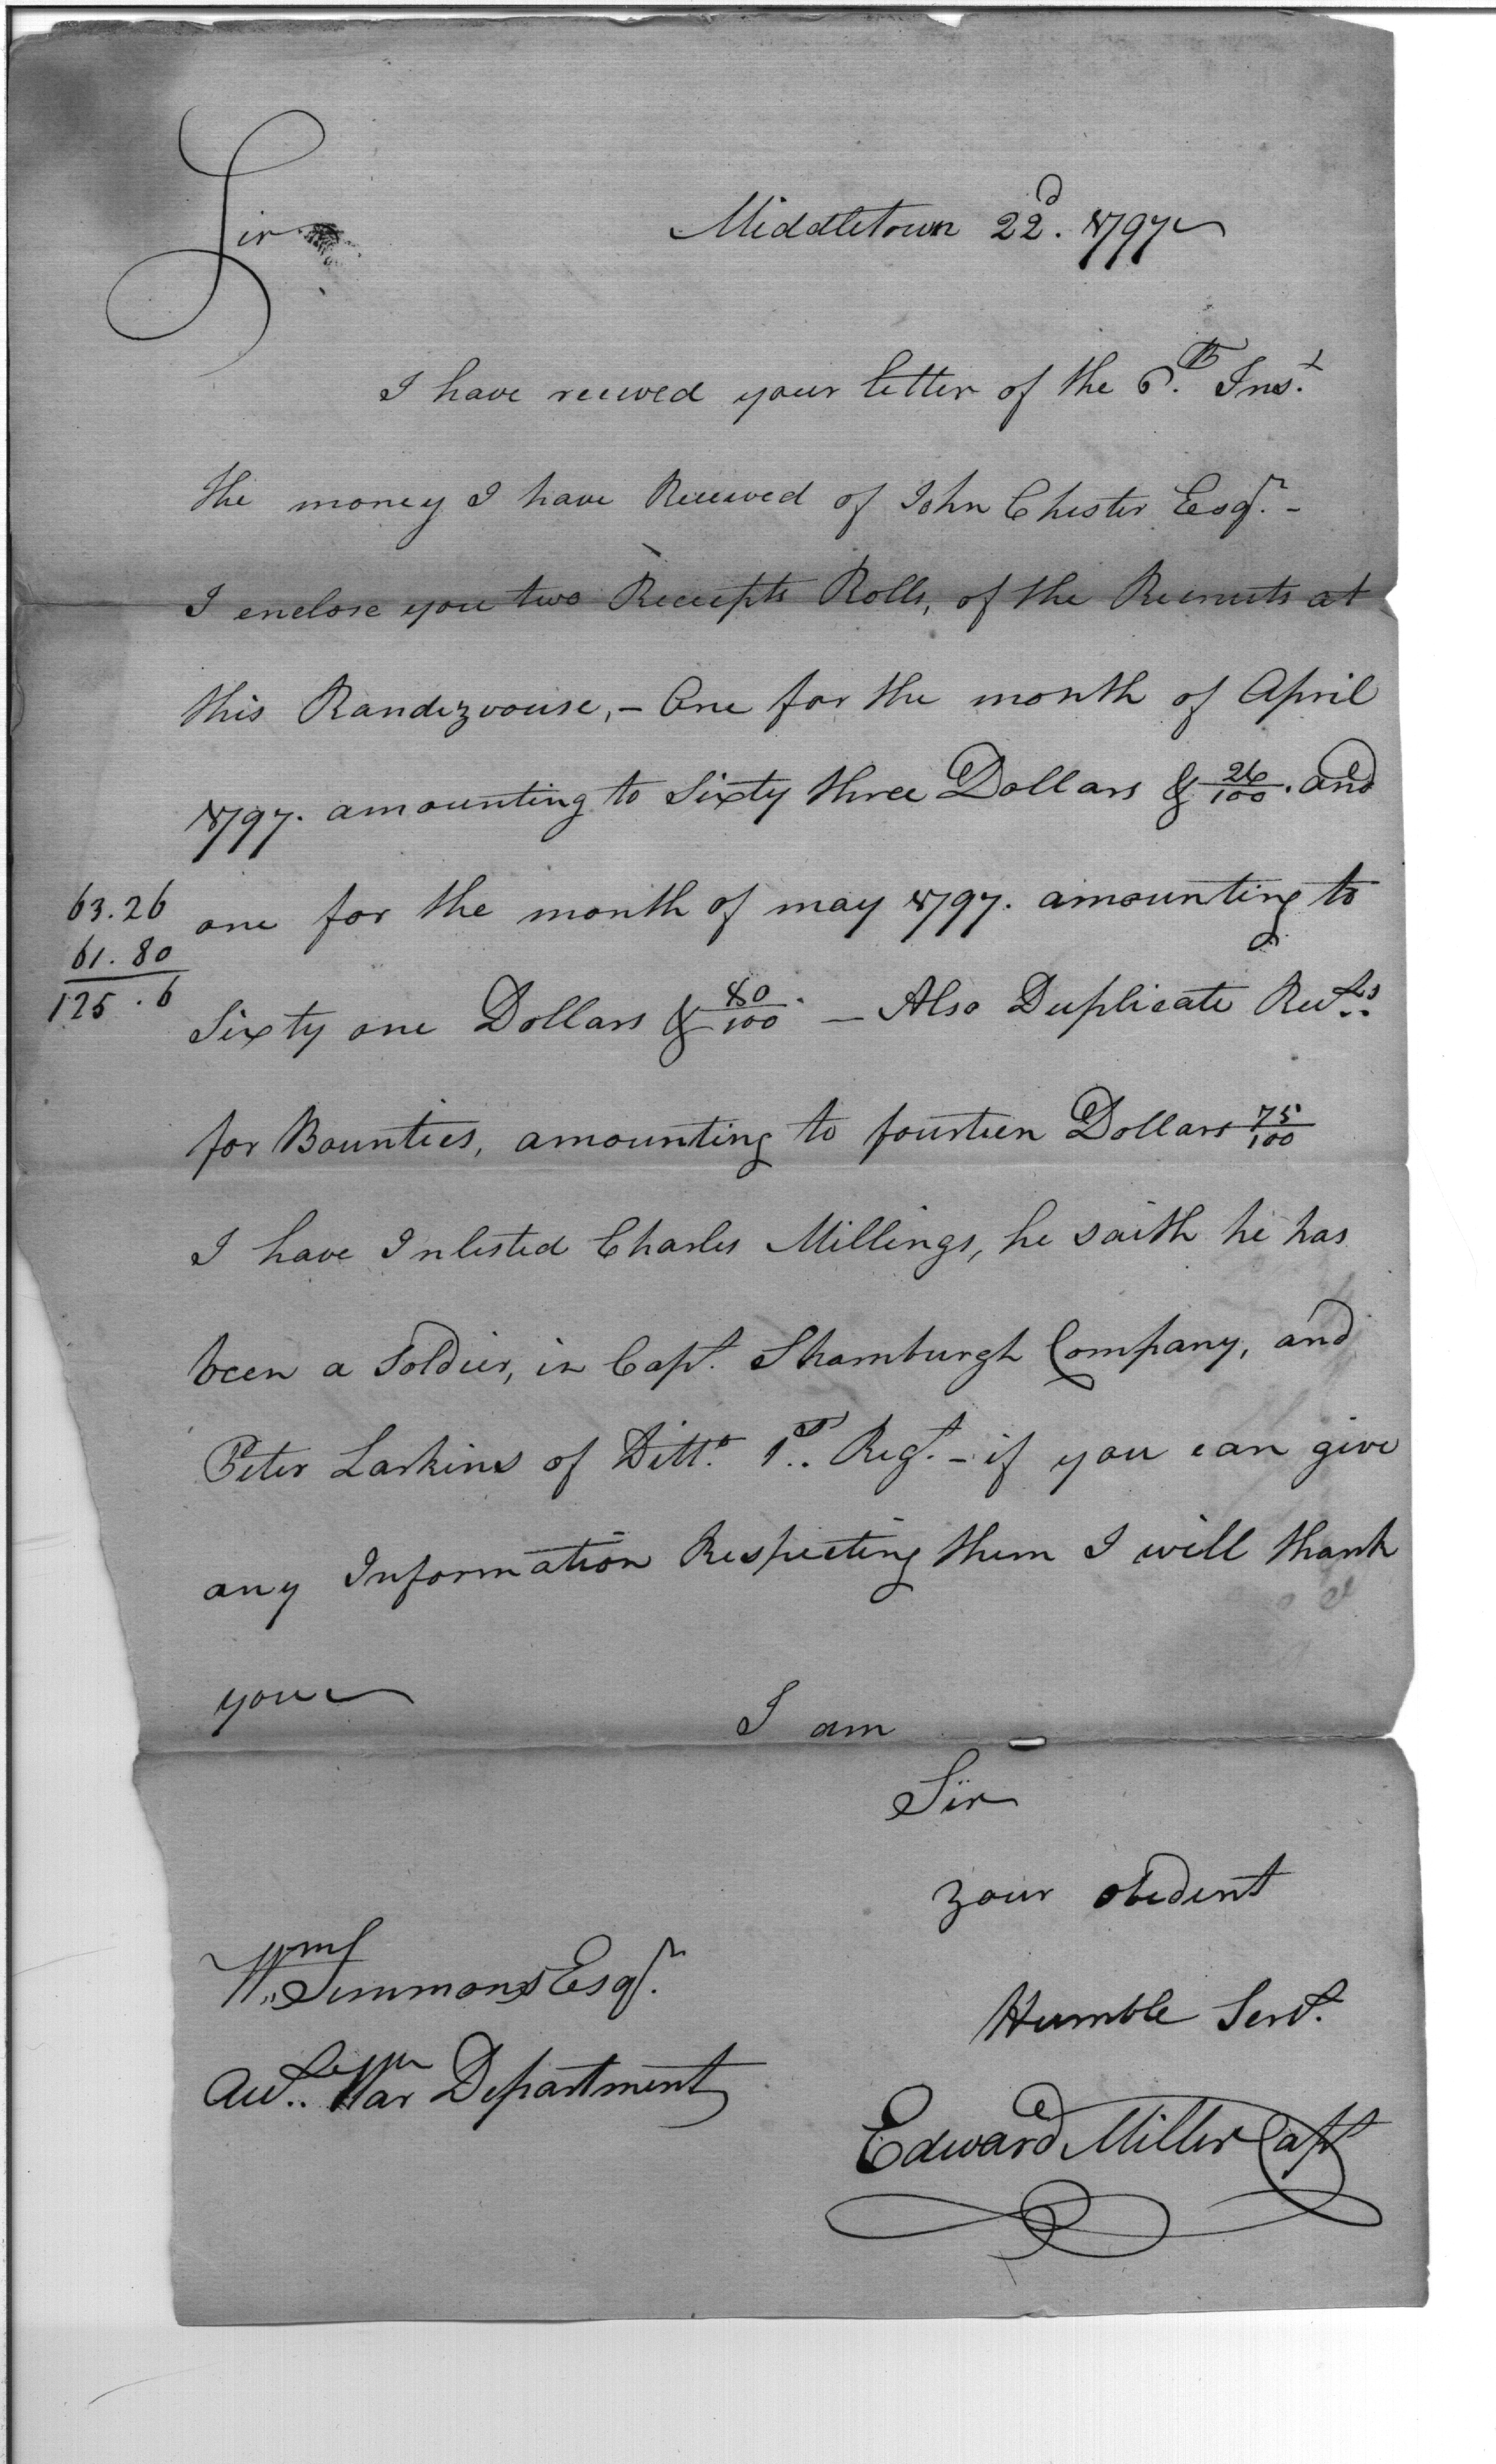 Sir
Middletown 22d. 1797
I have recieved your letter of the 6th. Inst.
the money I have Recieved of John Chester Esqr. -
I enclose you two Receipts Rolls, of the Recruits at
this Randezvouse, - One for the month of April
1797. amounting to Sixty three Dollars & 26/100. and
63.26
one for the month of may 1797. amounting to
61.80
125.6
Sixty one Dollars & 80/100. — Also Duplicate Recpts..
for Bounties, amounting to fourteen Dollars 75/100
I have Inlisted Charles Millings, he saith he has
been a Soldier, in Capt. Shamburgh Company, and
Peter Larkins of Ditto. 1st.. Regt. - if you can give
any Information Respecting them I will thank
you
I am
Sir
your obedent
Wm. Simmons Esqr.
Humble Servt.
War Department
Edward Miller Capt